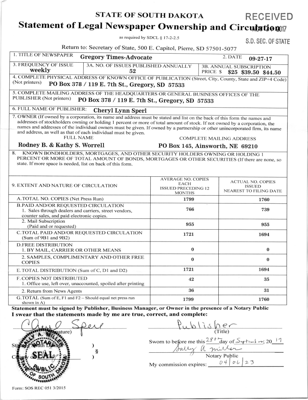 STATE OF SOUTH DAKOTA
RECEIVED
Statement of Legal Newspaper Ownership and Circulation
as required by SDCL § 17-2-2.5
S.D. SEC. OF STATE
Return to: Secretary of State, 500 E. Capitol, Pierre, SD 57501-5077
1. TITLE OF NEWSPAPER
Gregory Times-Advocate
2. DATE
09-27-17
3. FREQUENCY OF ISSUE
weekly
3A. NO. OF ISSUES PUBLISHED ANNUALLY
52
3B. ANNUAL SUBSCRIPTION
PRICE $ $25 $39.50 $44.50
4. COMPLETE PHYSICAL ADDRESS OF KNOWN OFFICE OF PUBLICATION (Street, City, County, State and ZIP+4 Code)
(Not printers)
PO Box 378 / 119 E. 7th St., Gregory, SD 57533
5. COMPLETE MAILING ADDRESS OF THE HEADQUARTERS OF GENERAL BUSINESS OFFICES OF THE
PUBLISHER (Not printer)
PO Box 378 / 119 E. 7th St., Gregory, SD 57533
6. FULL NAME OF PUBLISHER
Cheryl Lynn Sperl
7. OWNER (If owned by a corporation, its name and address must be stated and list on the back of this form the names and
addresses of stockholders owning or holding 1 percent or more of total amount of stock. If not owned by a corporation, the
names and addresses of the individual owners must be given. If owned by a partnership or other unincorporated firm, its name
and address, as well as that of each individual must be given.
FULL NAME
COMPLETE MAILING ADDRESS
Rodney B. & Kathy S. Worrell
PO Box 145, Ainsworth, NE 69210
8. KNOWN BONDHOLDERS, MORTGAGES, AND OTHER SECURITY HOLDERS OWNING OR HOLDING 1
PERCENT OR MORE OF TOTAL AMOUNT OF BONDS, MORTGAGES OR OTHER SECURITIES (If there are none, so
state. If more space is needed, list on back of this form.
9. EXTENT AND NATURE OF CIRCULATION
AVERAGE NO. COPIES
EACH
ISSUED PRECEDING 12
MONTHS
ACTUAL NO. COPIES
ISSUED
NEAREST TO FILING DATE
A. TOTAL NO. COPIES (Net Press Run)
1799
1760
B. PAID AND/OR REQUESTED CIRCULATION
1. Sales through dealers and carriers, street vendors,
counter sales, and paid electronic copies.
766
739
2. Mail Subscription
(Paid and/or requested)
955
955
C. TOTAL PAID AND/OR REQUESTED CIRCULATION
(Sum of 9B1 and 9B2)
1721
1694
D. FREE DISTRIBUTION
1. BY MAIL, CARRIER OR OTHER MEANS
0
0
2. SAMPLES, COMPLIMENTARY AND OTHER FREE
COPIES
0
0
E. TOTAL DISTRIBUTION (Sum of C, D1 and D2)
1721
1694
F. COPIES NOT DISTRIBUTED
1. Office use, left over, unaccounted, spoiled after printing
42
35
2. Return from News Agents
36
31
G. TOTAL (Sum of E, F1 and F2 - Should equal net press run
shown in A)
1799
1760
Statement must be signed by Publisher, Business Manager, or Owner in the presence of a Notary Public
I swear that the statements made by me are true, correct, and complete:
Cheryl Sperl
Publisher
(Signature)
(Title)
Sworn to before me this 28th day of September 2017
Notary Public
SEAL
My commission expires:
Form: SOS REC 051 3/2015